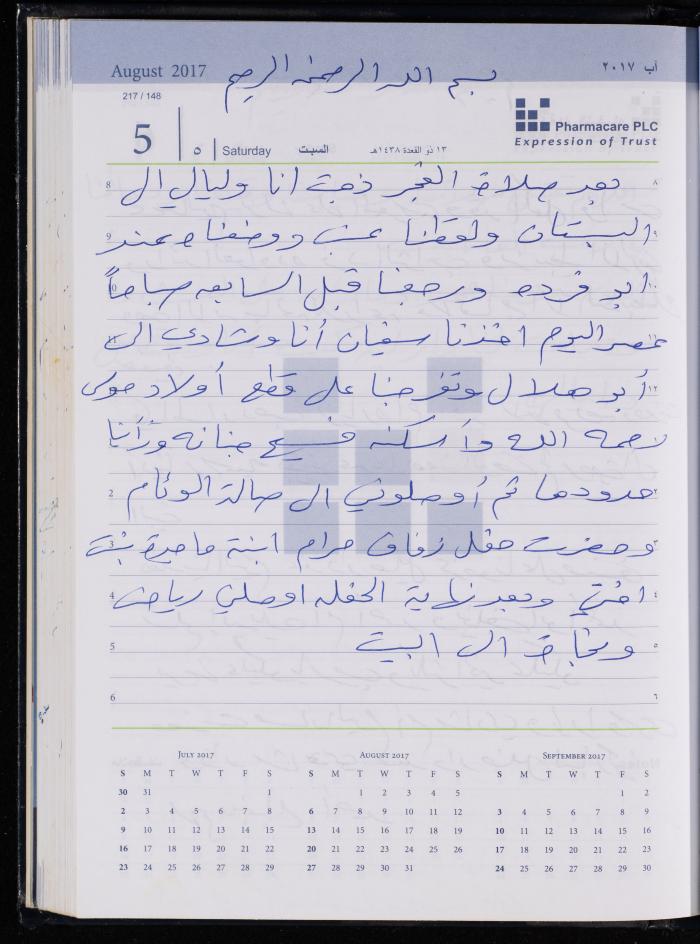 August 2017
بسم الله الرحمن الرحيم
آب ٢٠١٧
217 / 148
5
٥
Saturday
السبت
١٣ ذو القعدة ١٤٣٨هـ
Pharmacare PLC
Expression of Trust
8 بعد صلاة الفجر ذهبت انا وليال ال ٨
9 البستان ولقطنا عنب ووضعناه عند ٩
10 ابو قرده ورجعنا قبل السابعه صباحاً ١٠
11 عصر اليوم اخذنا سفيان أنا وشادي الى ١١
أبو هلال وتفرجنا على قطع أولاد ١٢
رحمه الله وأسكنه فسيح جنانه ورأينا
2 حدودها ثم أوصلوني ال صالة الوئام ٢
3 وحضرت حفل زفاف مرام ابنة ماجدة بنت
4 اختي وبعد نهاية الحفله اوصلني رياض ٤
5 ال البيت ٥
6 ٦
JULY 2017
S M T W T F S
30 31 1
2 3 4 5 6 7 8
9 10 11 12 13 14 15
16 17 18 19 20 21 22
23 24 25 26 27 28 29
AUGUST 2017
S M T W T F S
1 2 3 4 5
6 7 8 9 10 11 12
13 14 15 16 17 18 19
20 21 22 23 24 25 26
27 28 29 30 31
SEPTEMBER 2017
S M T W T F S
1 2
3 4 5 6 7 8 9
10 11 12 13 14 15 16
17 18 19 20 21 22 23
24 25 26 27 28 29 30